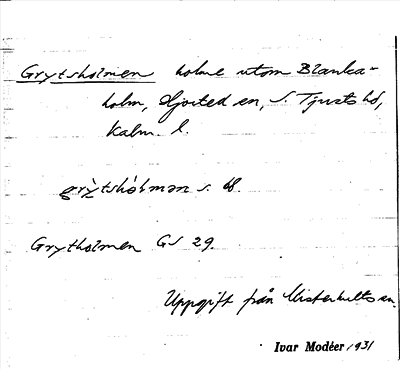 Grytsholmen holme utom Blanka-
holm, Hjorted sn, S. Tjusts hd,
Kalm. l.
grỳtshól̀mən s. ub.
Grytholmen GS 29.
Uppgift från Misterhults sn.
Ivar Modéer 1931